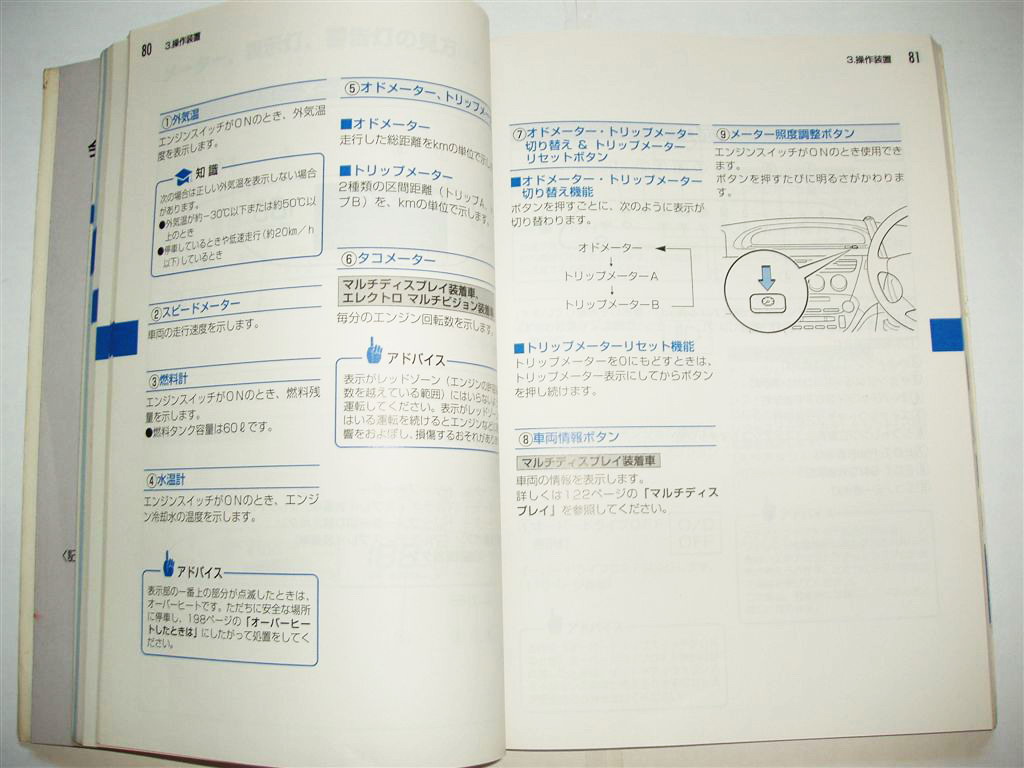 80
3.操作装置
①外気温
エンジンスイッチがONのとき、外気温
度を表示します。
知識
次の場合は正しい外気温を表示しない場合
があります。
●外気温が約－30℃以下または約50℃以
上のとき
●停車しているときや低速走行（約20km／h
以下）しているとき
②スピードメーター
車両の走行速度を示します。
③燃料計
エンジンスイッチがONのとき、燃料残
量を示します。
●燃料タンク容量は60ℓです。
④水温計
エンジンスイッチがONのとき、エンジ
ン冷却水の温度を示します。
アドバイス
表示部の一番上の部分が点滅したときは、
オーバーヒートです。ただちに安全な場所
に停車し、198ページの「オーバーヒー
トしたときは」にしたがって処置をしてく
ださい。
⑤オドメーター、トリップメー
■オドメーター
走行した総距離をkmの単位で示し
■トリップメーター
2種類の区間距離（トリップA、
プB）を、kmの単位で示します。
⑥タコメーター
マルチディスプレイ装着車、
エレクトロ マルチビジョン装着
毎分のエンジン回転数を示します
アドバイス
表示がレッドゾーン（エンジンの許
数を越えている範囲）にはいらない
運転してください。表示がレッドゾー
はいる運転を続けるとエンジンなどに
響をおよぼし、損傷するおそれがあり
3.操作装置
81
⑦オドメーター・トリップメーター
切り替え & トリップメーター
リセットボタン
■オドメーター・トリップメーター
切り替え機能
ボタンを押すごとに、次のように表示が
切り替わります。
オドメーター
↓
トリップメーターA
↓
トリップメーターB
■トリップメーターリセット機能
トリップメーターを0にもどすときは、
トリップメーター表示にしてからボタン
を押し続けます。
⑧車両情報ボタン
マルチディスプレイ装着車
車両の情報を表示します。
詳しくは122ページの「マルチディス
プレイ」を参照してください。
⑨メーター照度調整ボタン
エンジンスイッチがONのとき使用でき
ます。
ボタンを押すたびに明るさがかわりま
す。